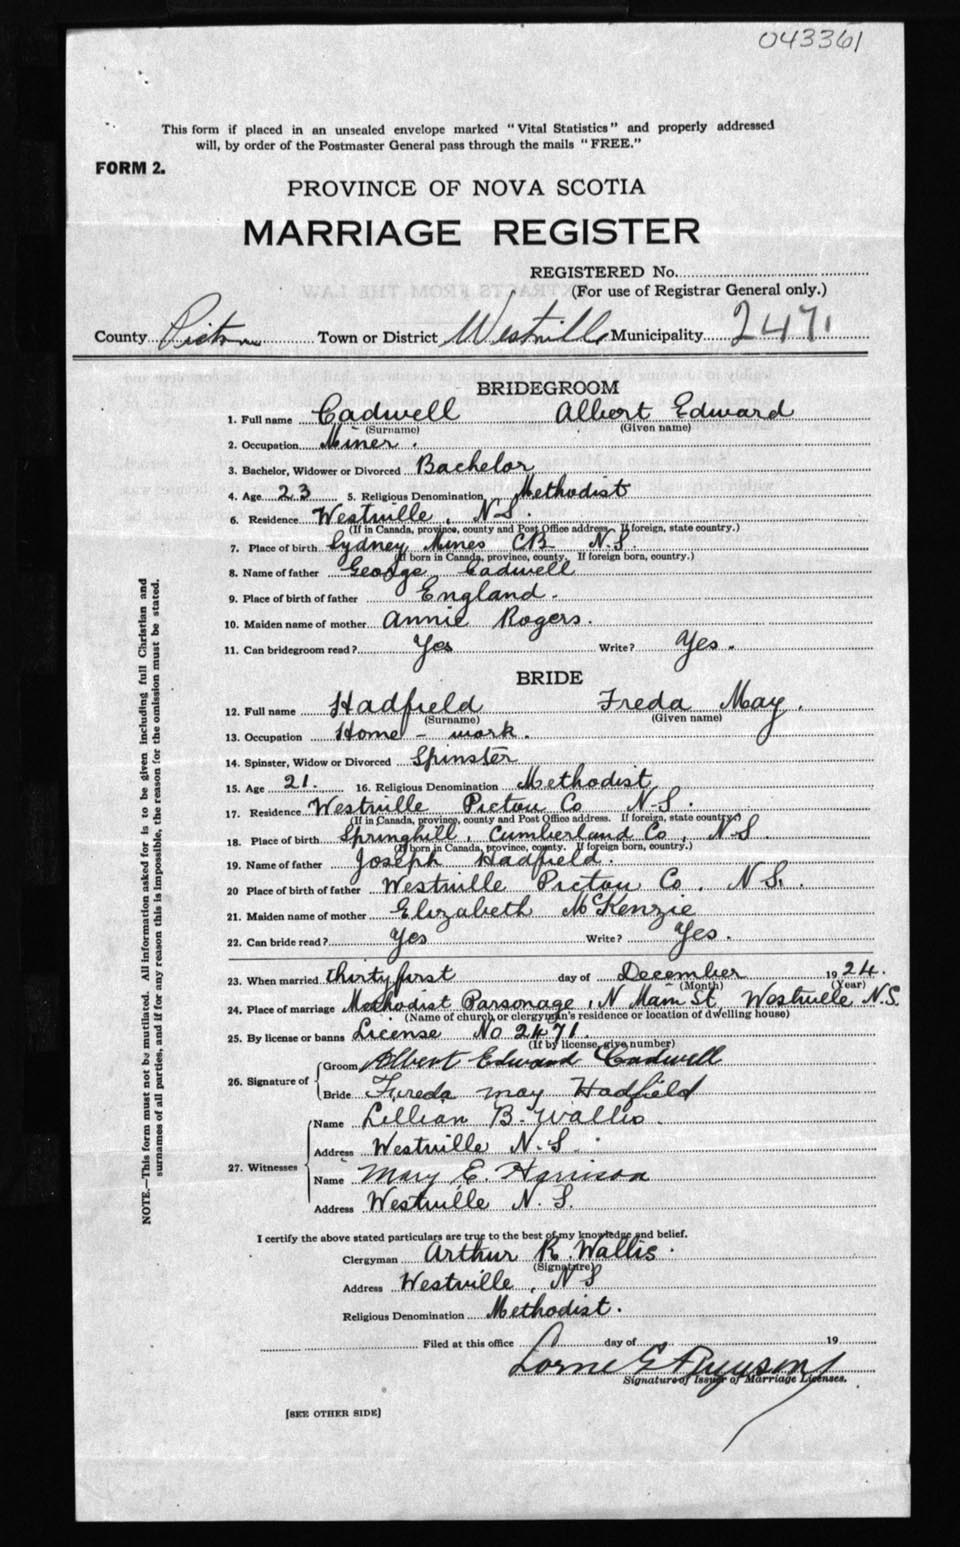 043361
This form if placed in an unsealed envelope marked "Vital Statistics" and properly addressed
will, by order of the Postmaster General pass through the mails "FREE."
FORM 2.
PROVINCE OF NOVA SCOTIA
MARRIAGE REGISTER
REGISTERED No.
(For use of Registrar General only.)
County Pictou Town or District Westville Municipality 2471
BRIDEGROOM
1. Full name Cadwell Albert Edward
(Surname) (Given name)
2. Occupation Miner.
3. Bachelor, Widower or Divorced Bachelor
4. Age 23 5. Religious Denomination Methodist
6. Residence Westville, N.S.
(If in Canada, province, county and Post Office address. If foreign, state country.)
7. Place of birth Sydney Mines CB. N.S.
(If born in Canada, province, county. If foreign born, country.)
8. Name of father George Cadwell
9. Place of birth of father England.
10. Maiden name of mother Annie Rogers.
11. Can bridegroom read? Yes Write? Yes.
BRIDE
12. Full name Hadfield Freda May.
(Surname) (Given name)
13. Occupation Home - work.
14. Spinster, Widow or Divorced Spinster
15. Age 21. 16. Religious Denomination Methodist
17. Residence Westville Pictou Co N.S.
(If in Canada, province, county and Post Office address. If foreign, state country.)
18. Place of birth Springhill, Cumberland Co, N.S.
(If born in Canada, province, county. If foreign born, country.)
19. Name of father Joseph Hadfield.
20 Place of birth of father Westville Pictou Co. N.S.
21. Maiden name of mother Elizabeth McKenzie
22. Can bride read? Yes Write? Yes.
23. When married thirty first day of December 1924.
(Month) (Year)
24. Place of marriage Methodist Parsonage, N Main St, Westville N.S.
(Name of church or clergyman's residence or location of dwelling house)
25. By license or banns License No 2471.
(If by license, give number)
26. Signature of
Groom Albert Edward Cadwell
Bride Freda may Hadfield
27. Witnesses
Name Lillian B. Wallis.
Address Westville N.S.
Name Mary E. Harrison
Address Westville N.S.
I certify the above stated particulars are true to the best of my knowledge and belief.
Clergyman Arthur R. Wallis.
(Signature)
Address Westville, N S
Religious Denomination Methodist.
Filed at this office day of 19
Lorne G
Signature of Issuer of Marriage Licenses.
[SEE OTHER SIDE]
NOTE.—This form must not be mutilated. All information asked for is to be given including full Christian and
surnames of all parties, and if for any reason this is impossible, the reason for the omission must be stated.